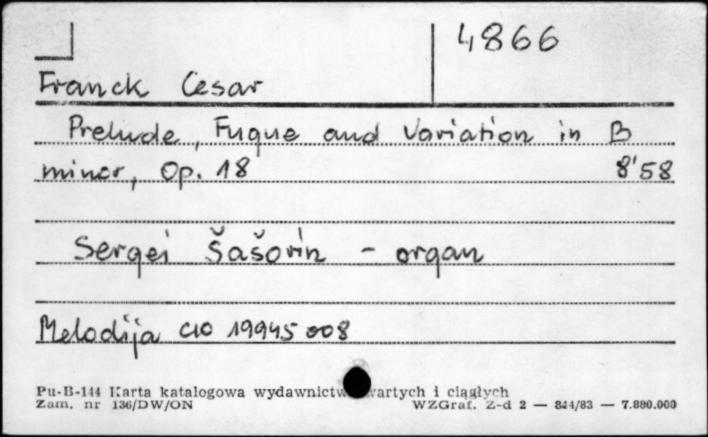 4866
Franck Cesar
Prelude, Fugue and Variation in B
minor, Op. 18 8'58
Sergei Šašorin - organ
Melodija C10 19945 008
Pu-B-144 Karta katalogowa wydawnictw zwartych i ciągłych
Zam. nr 136/DW/ON WZGraf. Z-d 2 — 844/83 — 7.880.000